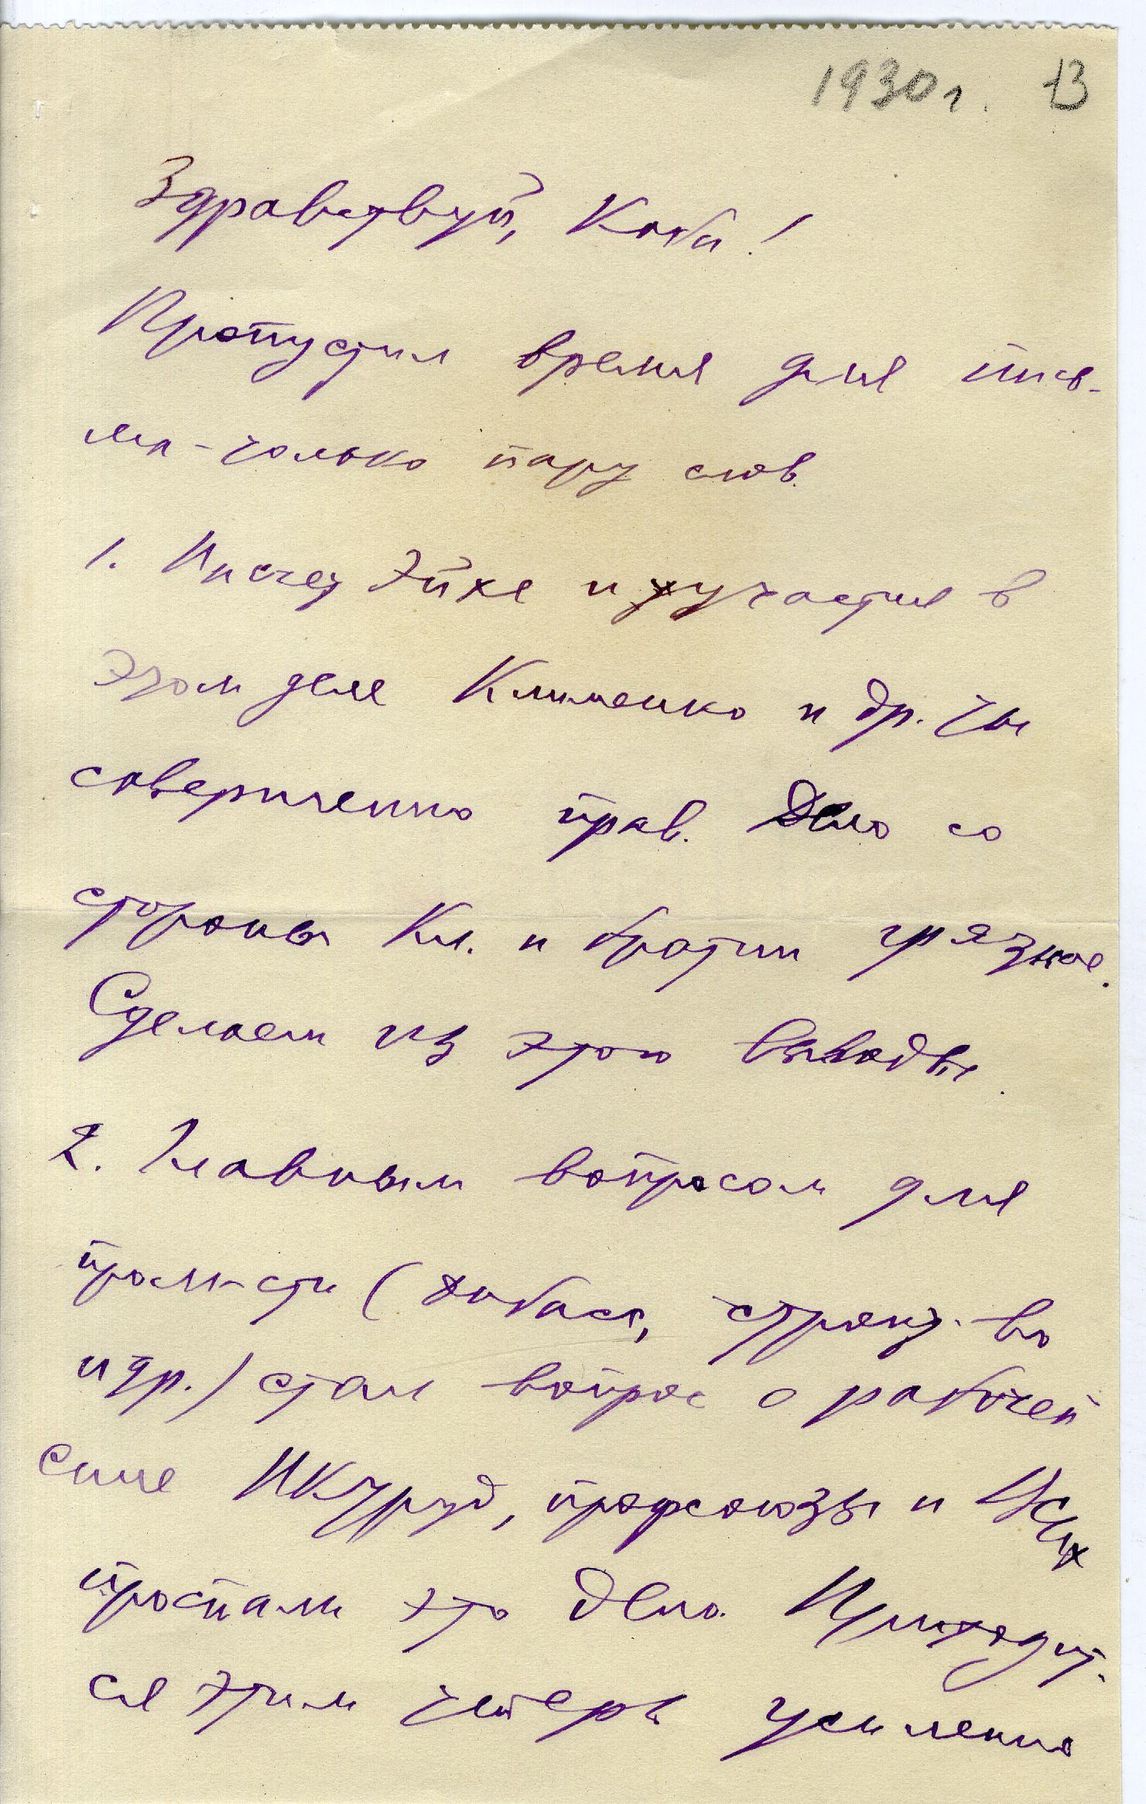 1930 г. 13
Здравствуй, Коба!
Пропустил время для пись-
ма - только пару слов.
1. Насчет Эйхе и участия в
этом деле Клименко и др. ты
совершенно прав. Дело со
стороны Кл. и братии грязное.
Сделаем из этого выводы.
2. Главным вопросом для
пром-сти (Донбасс, строит-во
и др.) стал вопрос о рабочей
силе НКТруд, профсоюзы и
проспали это дело. Приходит-
ся этим теперь усиленно